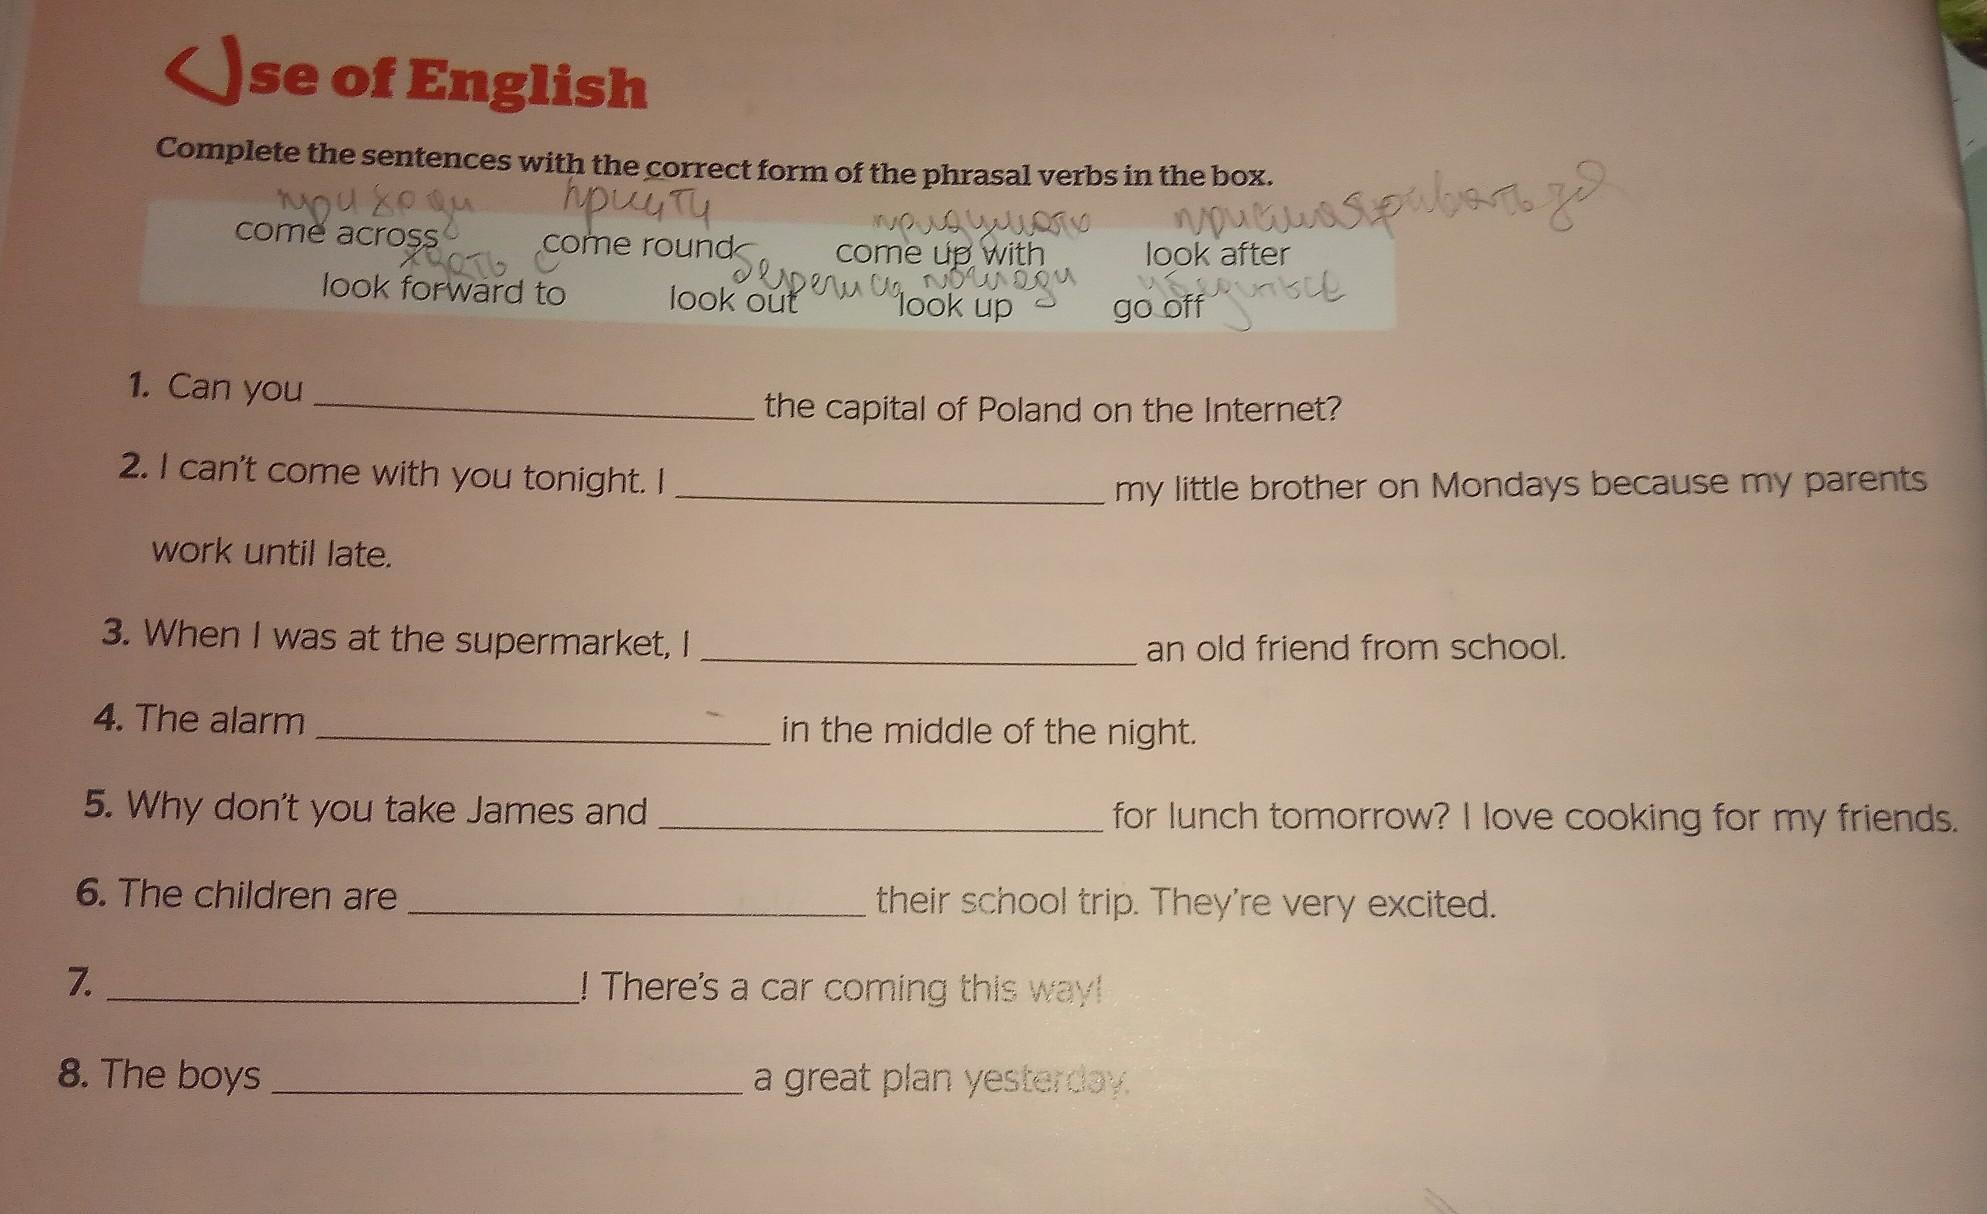 Use of English
Complete the sentences with the correct form of the phrasal verbs in the box.
приходи прийти придумать присматривать за
come across come round come up with look after
ждать
look forward to look out look up go off
1. Can you the capital of Poland on the Internet?
2. I can't come with you tonight. I my little brother on Mondays because my parents
work until late.
3. When I was at the supermarket, I an old friend from school.
4. The alarm in the middle of the night.
5. Why don't you take James and for lunch tomorrow? I love cooking for my friends.
6. The children are their school trip. They're very excited.
7. ! There's a car coming this way!
8. The boys a great plan yesterday.